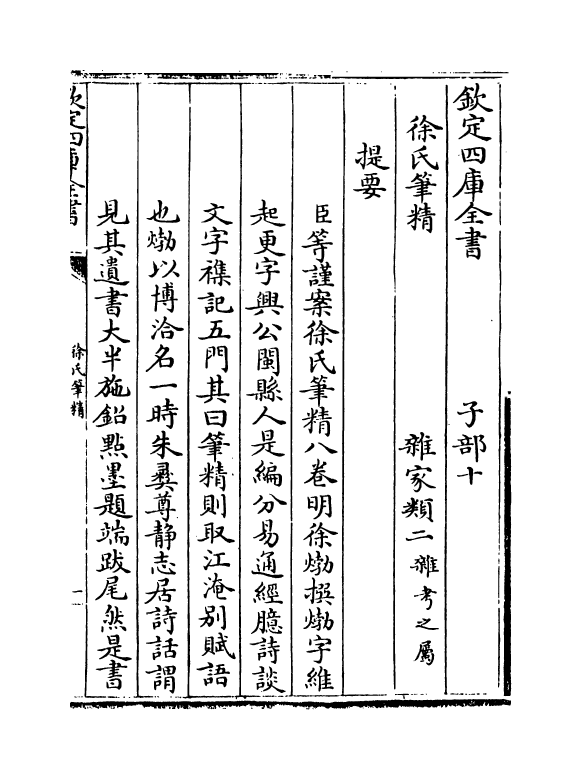 欽定四庫全書
子部十
徐氏筆精
雜家類二雜考之屬
提要
臣等謹案徐氏筆精八卷明徐𤊹撰𤊹字維
起更字興公閩縣人是編分易通經臆詩談
文字襍記五門其曰筆精則取江淹别賦語
也𤊹以博洽名一時朱彛尊静志居詩話謂
見其遺書大半施鉛㸃墨題端跋尾然是書
欽定四庫全書
徐氏筆精
一